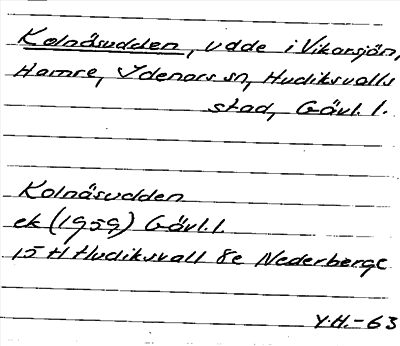 Kolnäsudden, udde i Vikarsjön,
Hamre, Idenors sn, Hudiksvalls
stad, Gävl. l.
Kolnäsudden
ek (1959) Gävl. l
15 H Hudiksvall 8e Nederberge
Y.H.-63